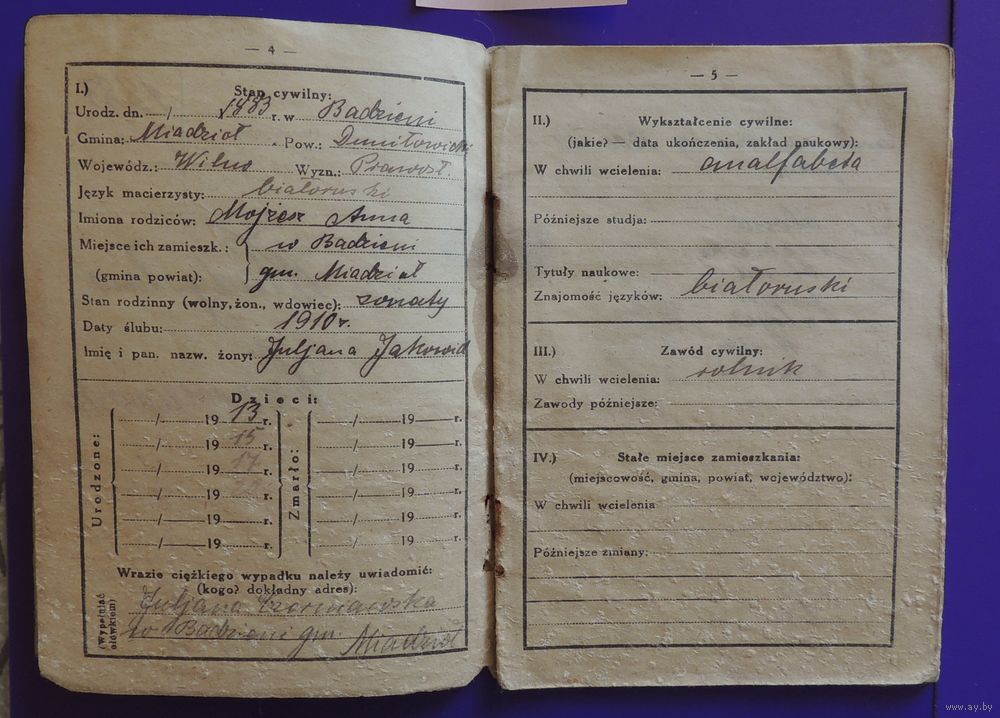 — 4 —
I.) Stan cywilny:
Urodz. dn. / 1883 r. w Badzieni
Gmina: Miadzioł Pow.: Duniłowicki
Wojewódz.: Wilno Wyzn.: Prawosł.
Język macierzysty: białoruski
Imiona rodziców: Mojżesz Anna
Miejsce ich zamieszk.: w Badzieni
(gmina powiat): gm. Miadzioł
Stan rodzinny (wolny, żon., wdowiec): żonaty
Daty ślubu: 1910 r.
Imię i pan. nazw. żony: Juljana
Dzieci:
Urodzone:
/ 19 13 r.
/ 19 15 r.
/ 19 17 r.
/ 19 r.
/ 19 r.
/ 19 r.
Zmarło:
/ 19 r.
/ 19 r.
/ 19 r.
/ 19 r.
/ 19 r.
/ 19 r.
Wrazie ciężkiego wypadku należy uwiadomić:
(kogo? dokładny adres):
(Wypełniać ołówkiem)
Juljana Czerniawska
w Badzieni gm. Miadzioł
— 5 —
II.) Wykształcenie cywilne:
(jakie? — data ukończenia, zakład naukowy):
W chwili wcielenia: analfabeta
Późniejsze studja:
Tytuły naukowe:
Znajomość języków: białoruski
III.) Zawód cywilny:
W chwili wcielenia: rolnik
Zawody późniejsze:
IV.) Stałe miejsce zamieszkania:
(miejscowość, gmina, powiat, województwo):
W chwili wcielenia
Późniejsze zmiany:
www.ay.by